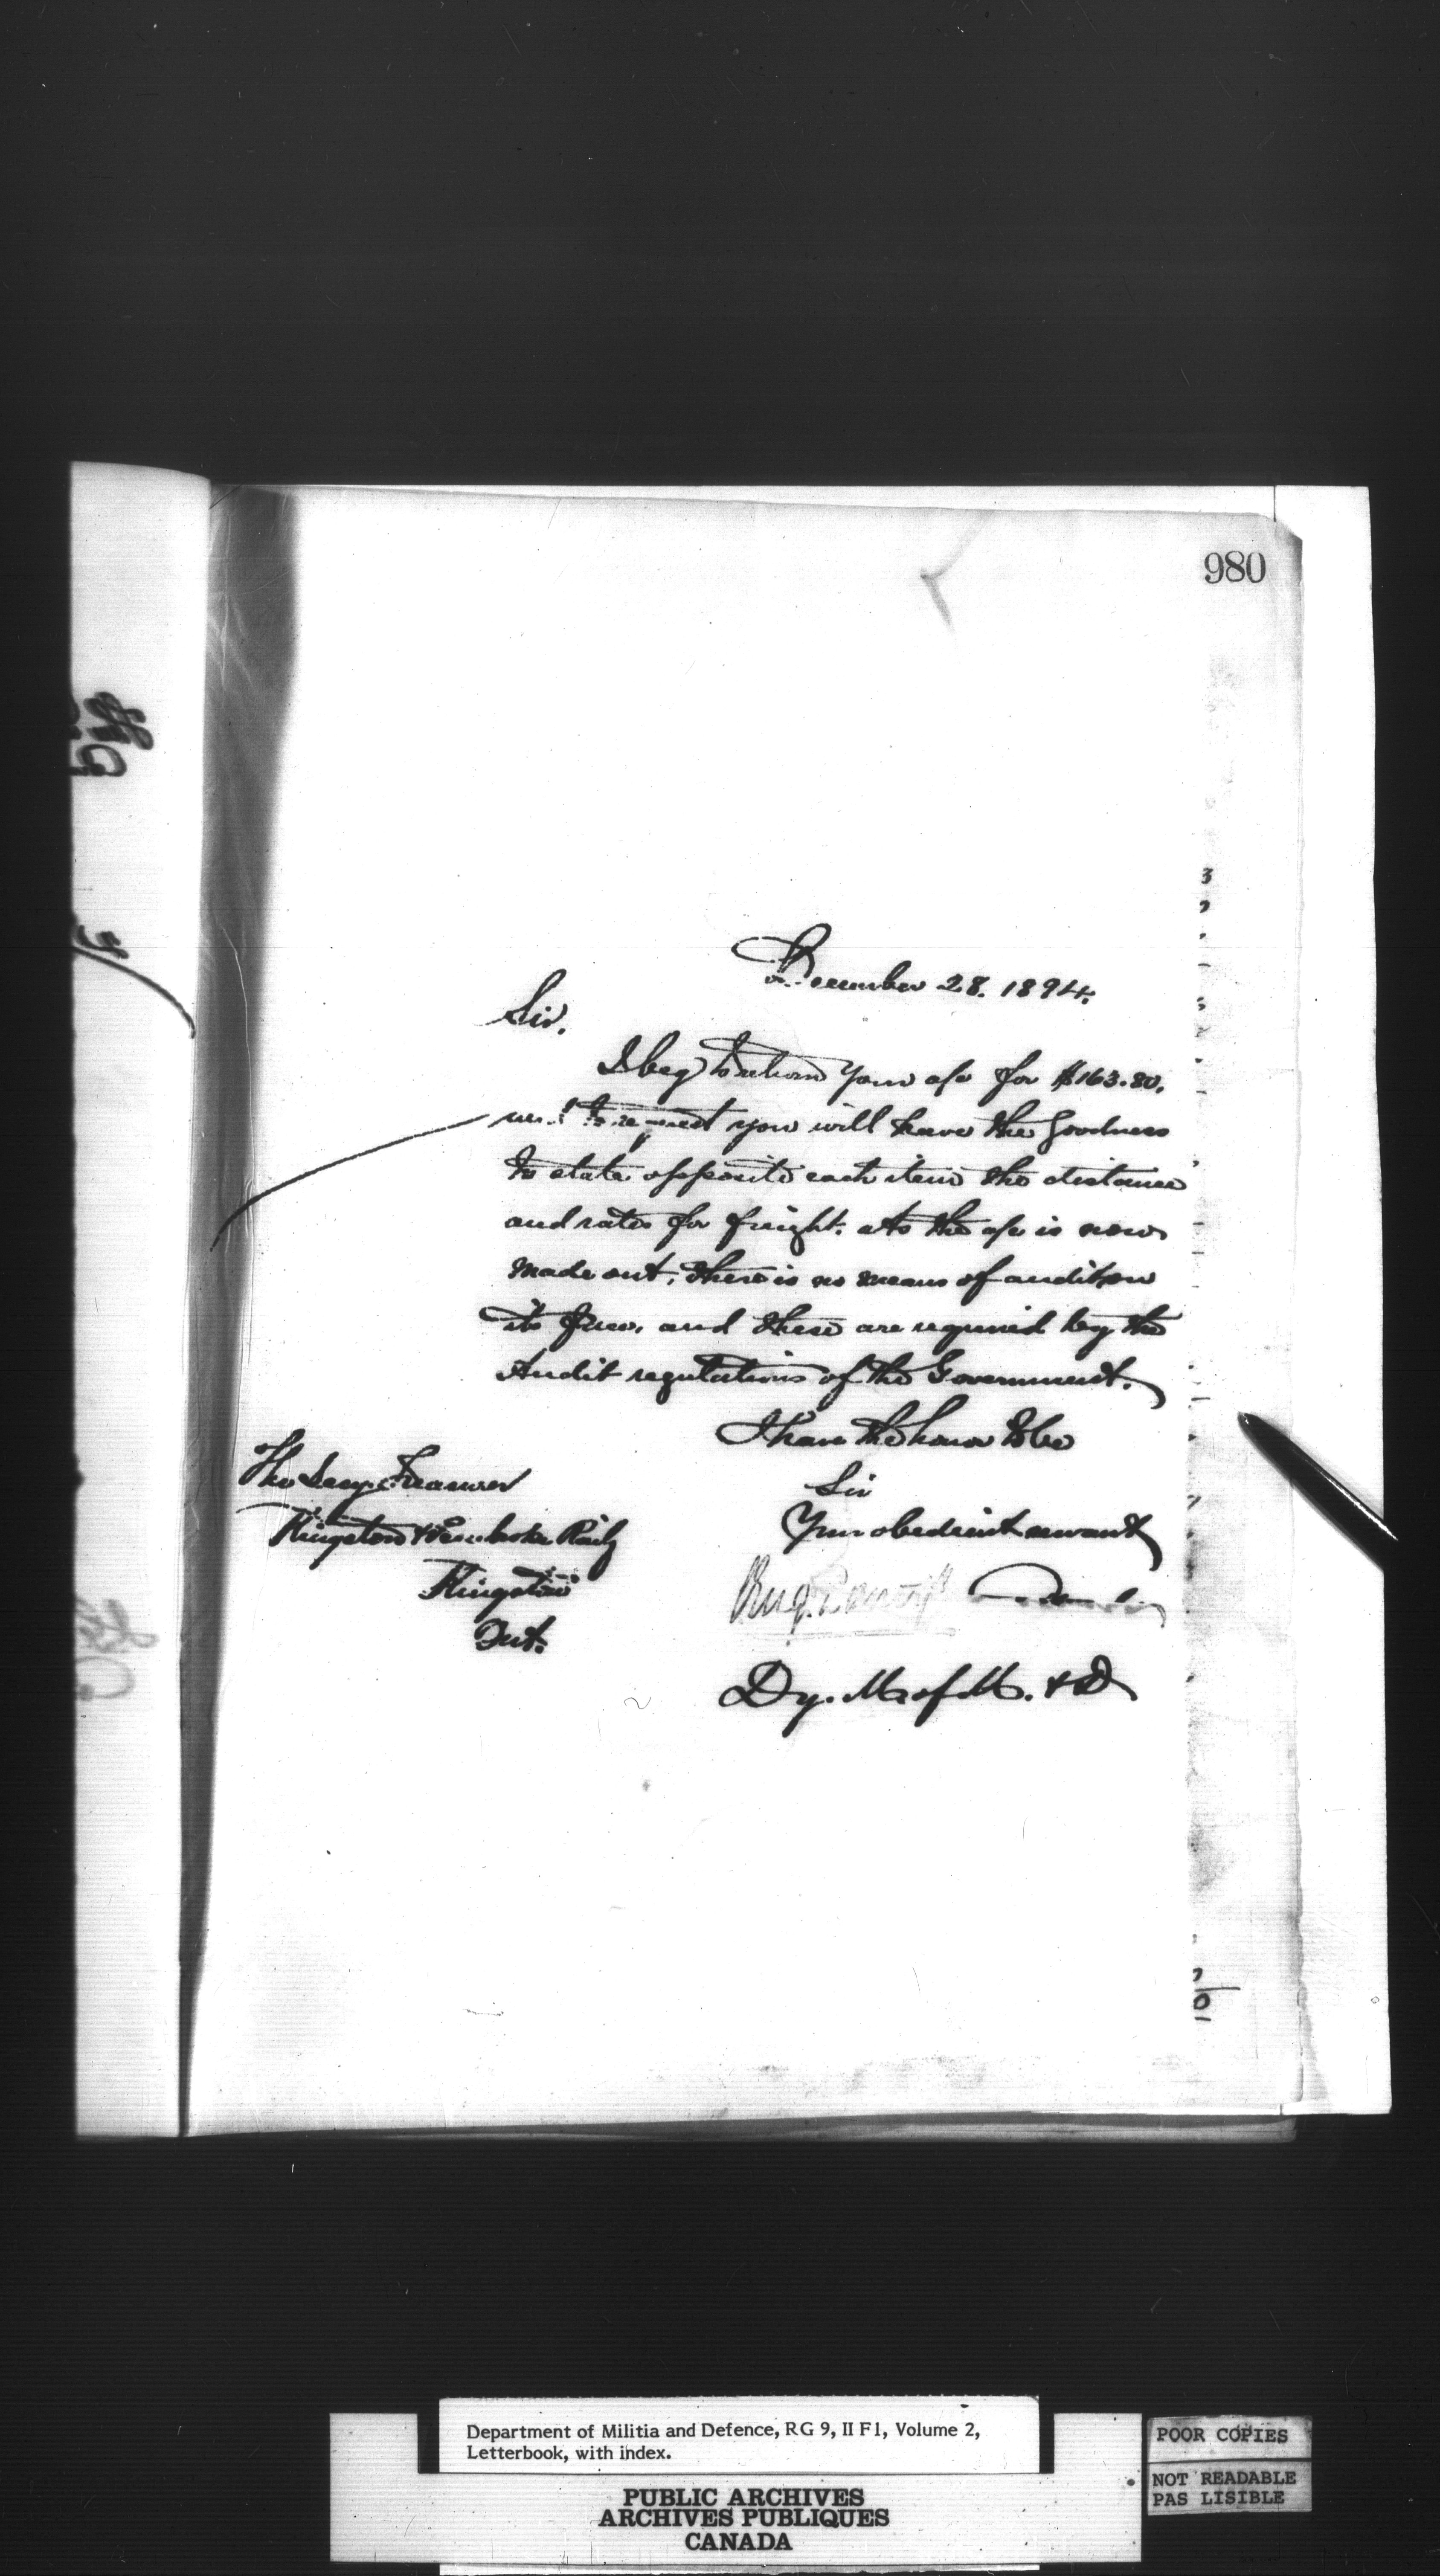 980
December 28. 1894.
Sir.
I beg to return your a/c for $163.80.
and to request you will have the goodness
to state opposite each item the distance
and rates for freight. As the a/c is now
made out, there is no means of audit on
its face, and these are required by the
Audit regulations of the Government.
I have the honor to be
Sir
Your obedient servant
Dy. M. of M. & D
The Secy. Treasurer
Kingston & Pembroke Raily
Kingston
Ont.
Department of Militia and Defence, RG 9, II F1, Volume 2,
Letterbook, with index.
PUBLIC ARCHIVES
ARCHIVES PUBLIQUES
CANADA
POOR COPIES
NOT READABLE
PAS LISIBLE